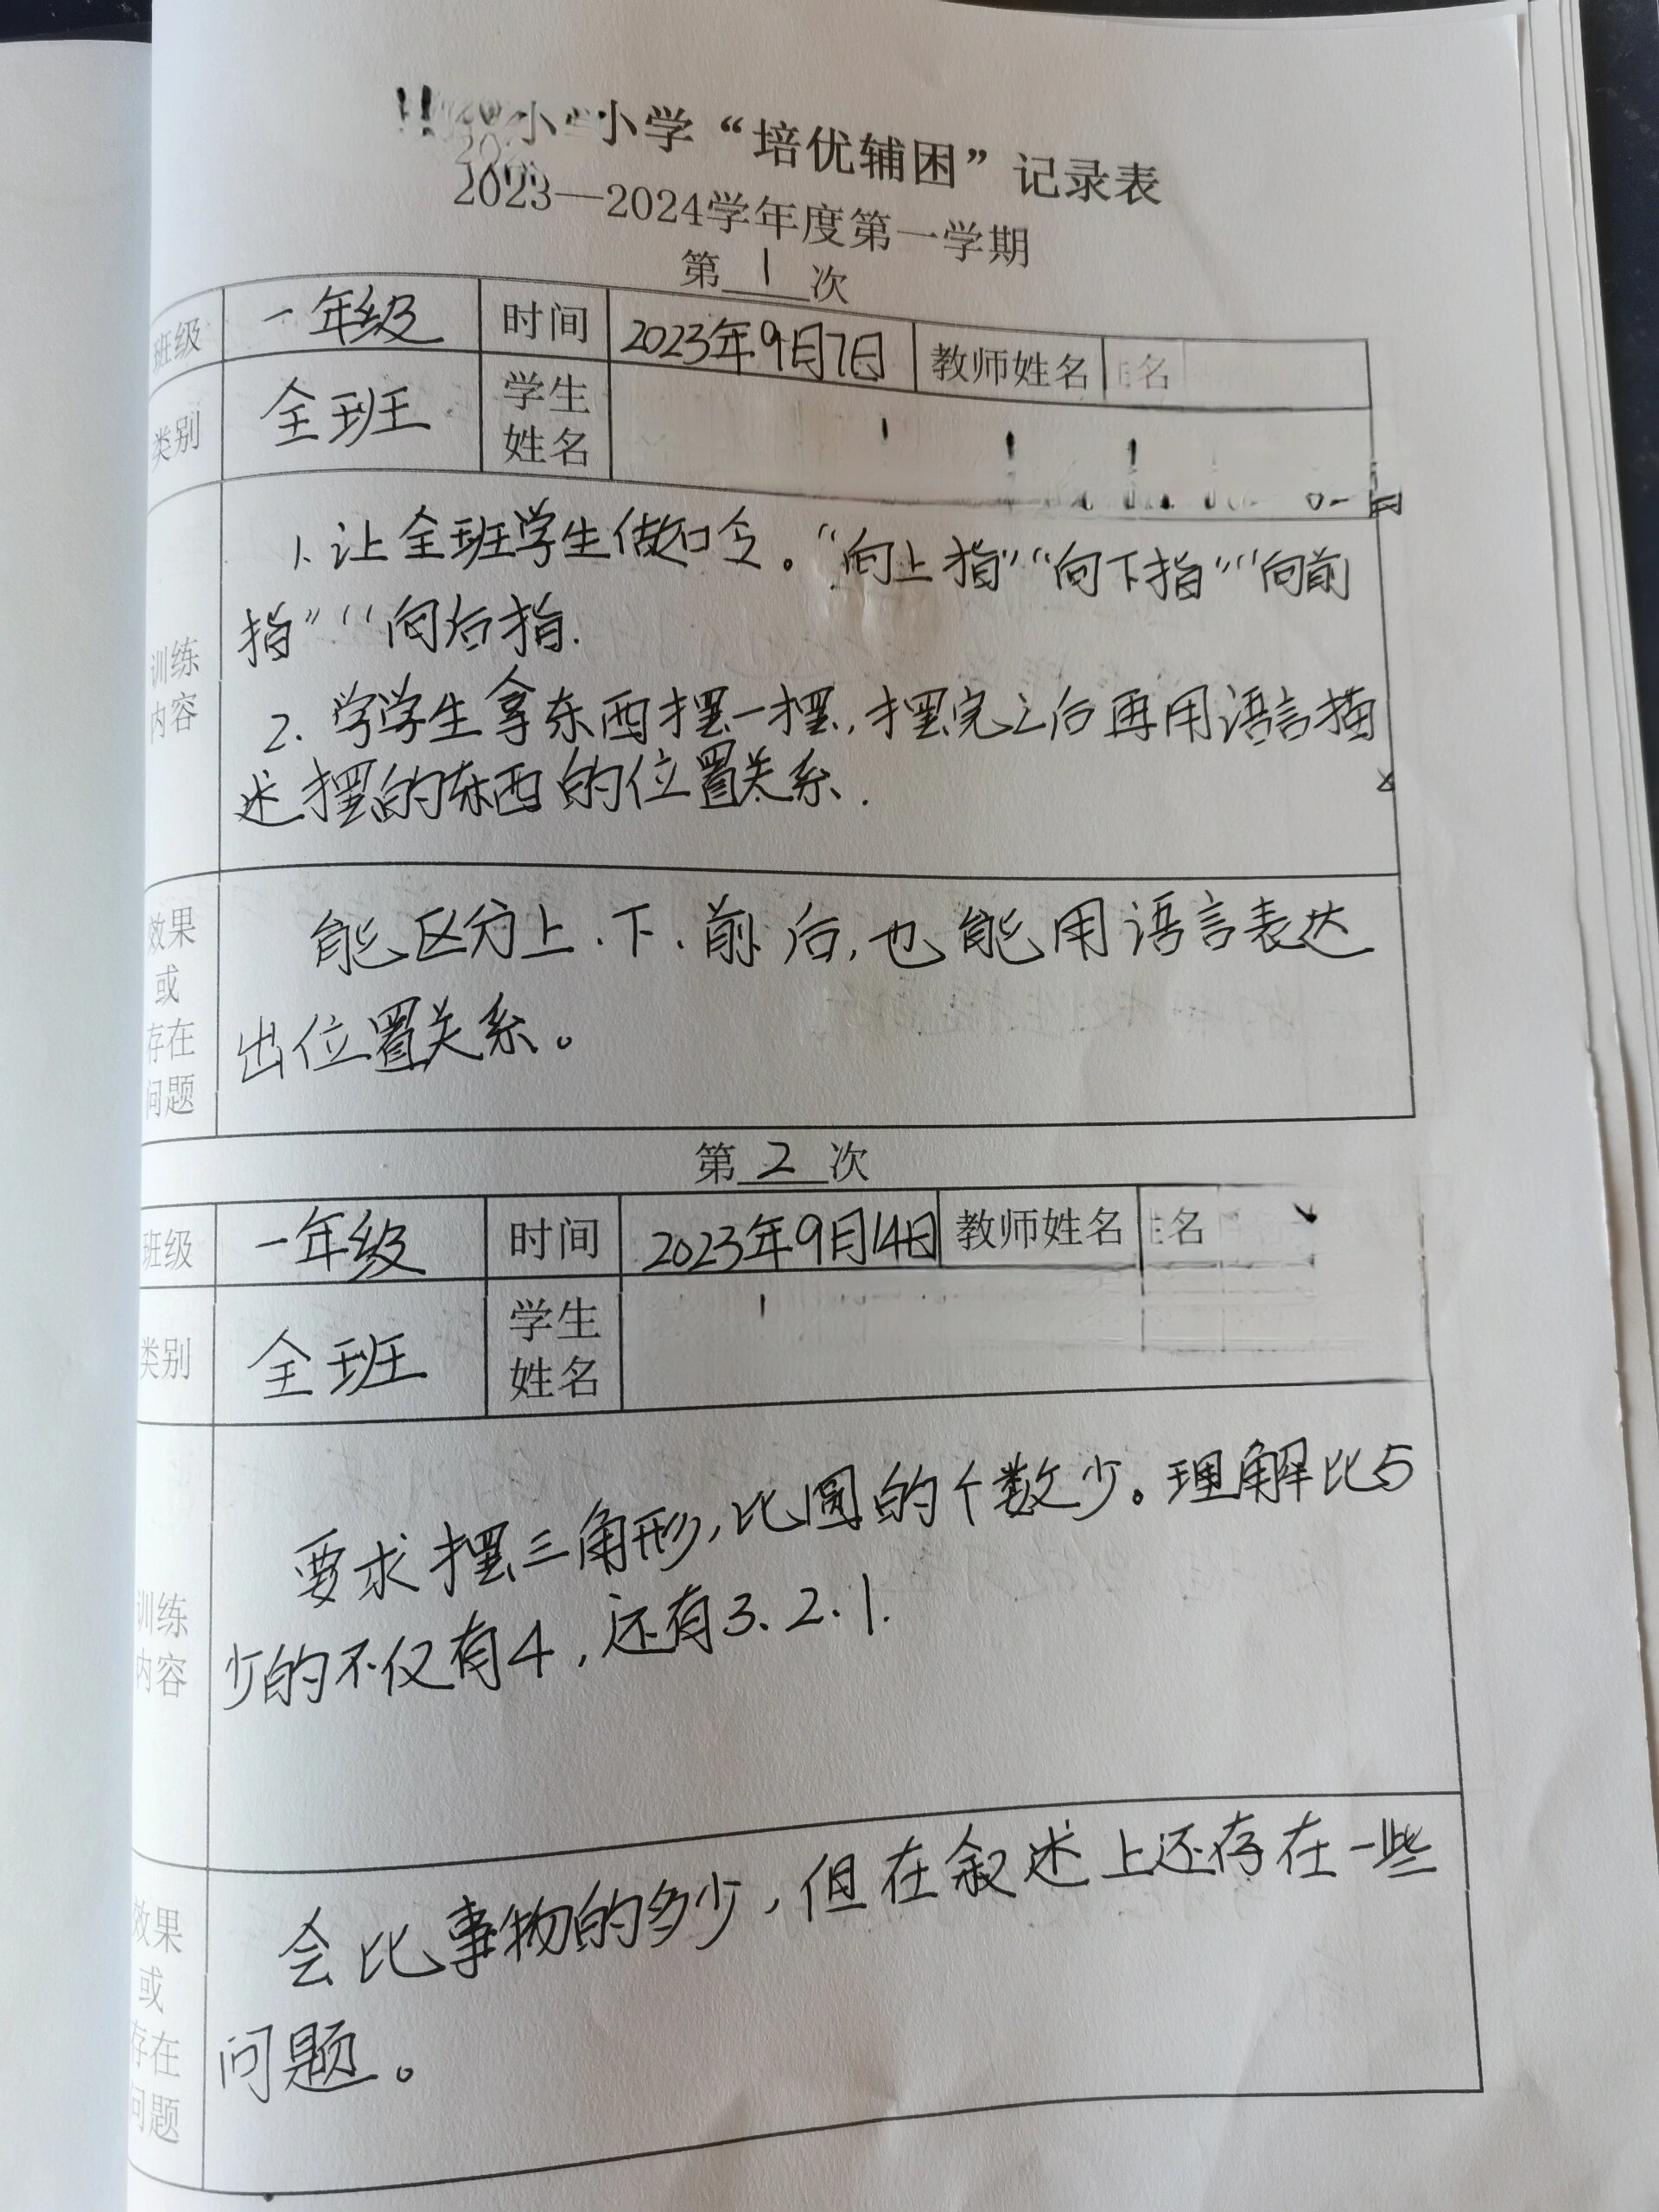 小学“培优辅困”记录表
2023—2024学年度第一学期
第 1 次
班级 一年级 时间 2023年9月7日 教师姓名
类别 全班 学生姓名
训练内容
1. 让全班学生做口令。“向上指”“向下指”“向前
指”“向后指.
2. 学学生拿东西摆一摆, 摆完之后再用语言描
述摆的东西的位置关系.
效果或存在问题
能区分上、下、前、后, 也能用语言表达
出位置关系。
第 2 次
班级 一年级 时间 2023年9月14日 教师姓名
类别 全班 学生姓名
训练内容
要求摆三角形, 比圆的个数少。理解比5
少的不仅有4, 还有3、2、1.
效果或存在问题
会比事物的多少, 但在叙述上还存在一些
问题。